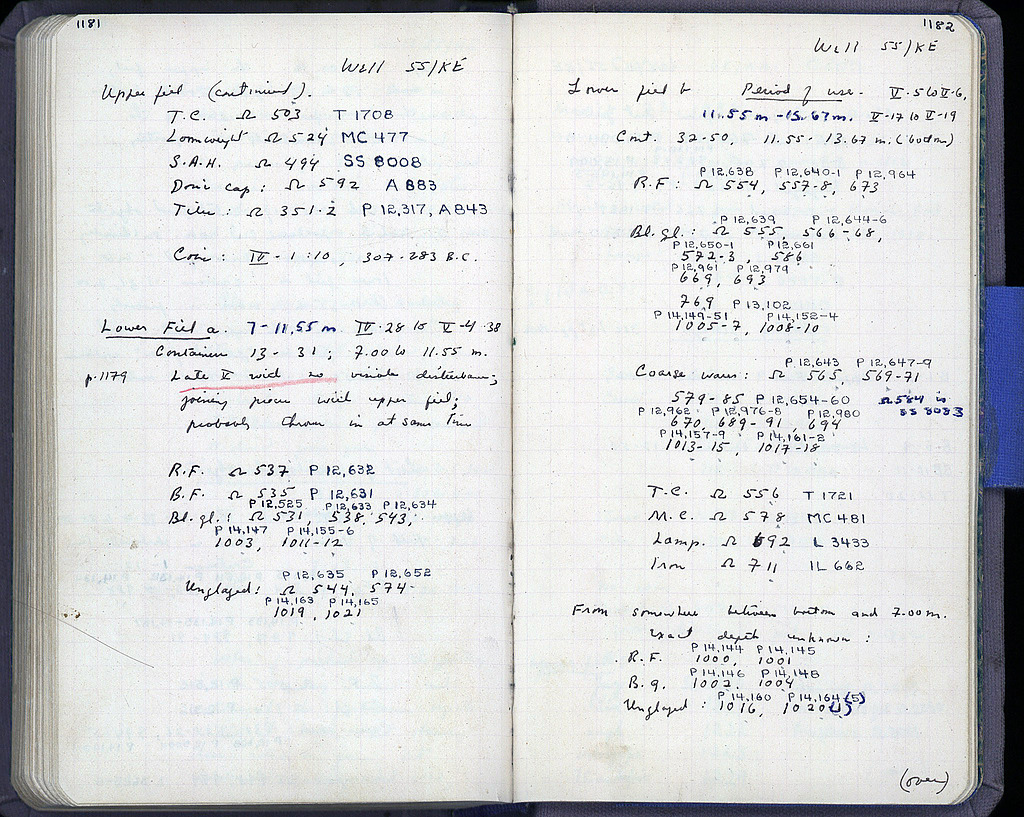 1181
Well 55/KE
Upper fill (continued).
T.C. Ω 503 T 1708
Loomweight Ω 524 MC 477
S.A.H. Ω 494 SS 8008
Doric cap: Ω 592 A 883
Tiles: Ω 351-2 P 12,317, A 843
Coin: IV-1:10, 307-283 B.C.
Lower Fill a. 7-11.55 m IV-28 to V-4 38
Containers 13-31; 7.00 to 11.55 m.
p.1179 Late V with no visible disturbance;
joining pieces with upper fill;
probably thrown in at same time
R.F. Ω 537 P 12,632
B.F. Ω 535 P 12,631
P 12,525 P 12,633 P 12,634
Bl.gl.: Ω 531, 538, 543,
P 14,147 P 14,155-6
1003, 1011-12
P 12,635 P 12,652
Unglazed: Ω 544, 574
P 14,163 P 14,165
1019, 1021
1182
Well 55/KE
Lower fill b Period of use. V-5 to V-6,
11.55 m - 13.67 m. V-17 to V-19
Cont. 32-50, 11.55-13.67 m. (bottom)
P 12,638 P 12,640-1 P 12,964
R.F: Ω 554, 557-8, 673
P 12,639 P 12,644-6
Bl.gl.: Ω 555, 566-68,
P 12,650-1 P 12,661
572-3, 586
P 12,961 P 12,979
669, 693
769 P 13,102
P 14,149-51 P 14,152-4
1005-7, 1008-10
P 12,643 P 12,647-9
Coarse wares: Ω 565, 569-71
579-85 P 12,654-60 Ω 584 is
SS 8083
P 12,962 P 12,976-8 P 12,980
670, 689-91, 694
P 14,157-9 P 14,161-2
1013-15, 1017-18
T.C. Ω 556 T 1721
M.C. Ω 578 MC 481
Lamp. Ω 692 L 3433
Iron Ω 711 IL 662
From somewhere between bottom and 7.00 m.
Exact depth unknown:
P 14,144 P 14,145
R.F. 1000, 1001
P 14,146 P 14,148
B.g. 1002, 1004
P 14,160 P 14,164 (5)
Unglazed: 1016, 1020
(over)